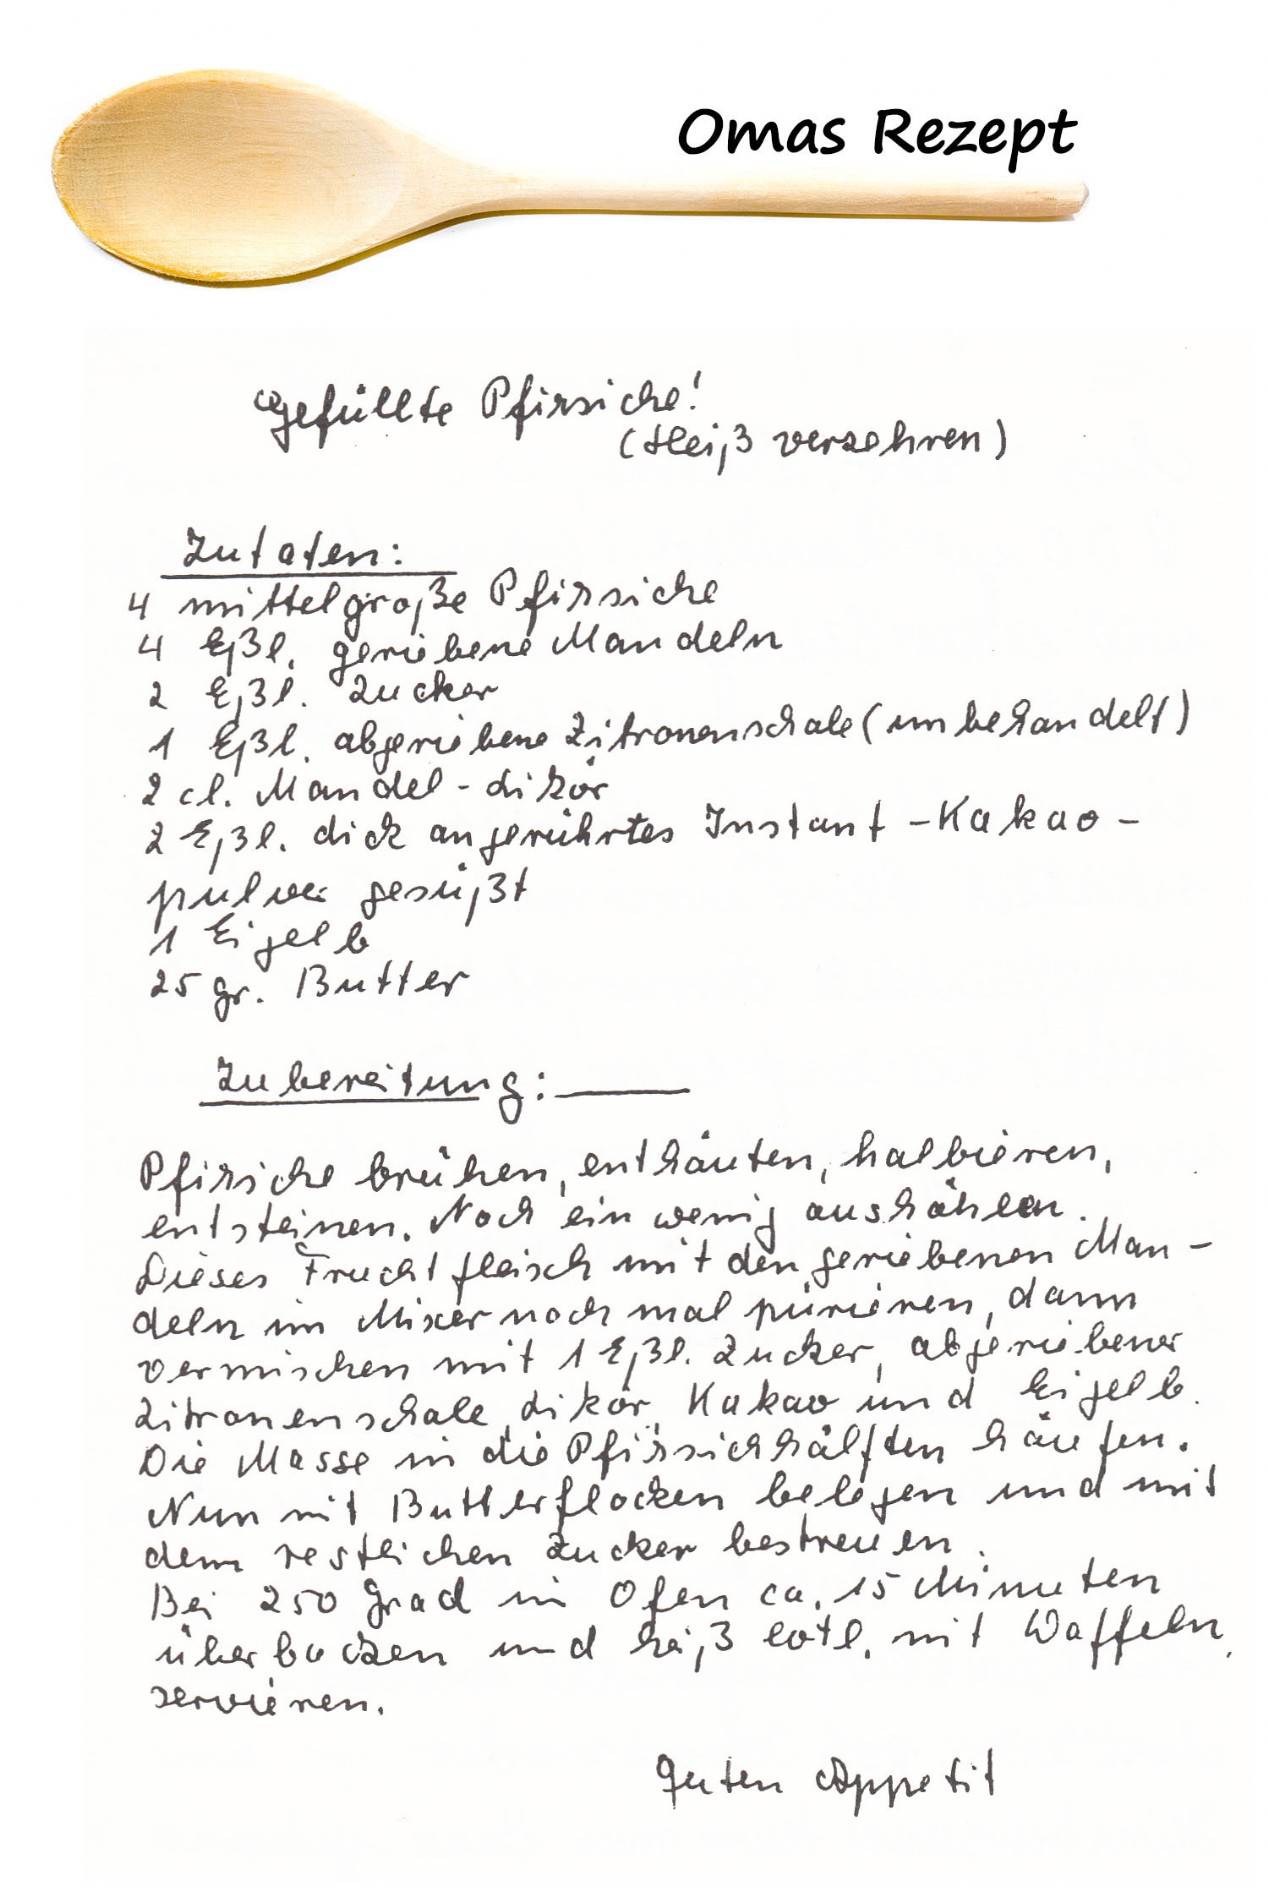 Omas Rezept
Gefüllte Pfirsiche!
(Heiß verzehren)
Zutaten:
4 mittelgroße Pfirsiche
4 Eßl. geriebene Mandeln
2 Eßl. Zucker
1 Eßl. abgeriebene Zitronenschale (unbehandelt)
2 cl. Mandel-Likör
2 Eßl. dick angerührtes Instant-Kakao-
pulver gesüßt
1 Eigelb
25 gr. Butter
Zubereitung:
Pfirsiche brühen, enthäuten, halbieren,
entsteinen. Noch ein wenig aushöhlen.
Dieses Fruchtfleisch mit den geriebenen Man-
deln im Mixer noch mal pürieren, dann
vermischen mit 1 Eßl. Zucker, abgeriebener
Zitronenschale, Likör, Kakao und Eigelb.
Die Masse in die Pfirsichhälften häufen.
Nun mit Butterflocken belegen und mit
dem restlichen Zucker bestreuen.
Bei 250 Grad im Ofen ca. 15 Minuten
überbacken und heiß evtl. mit Waffeln,
servieren.
Guten Appetit